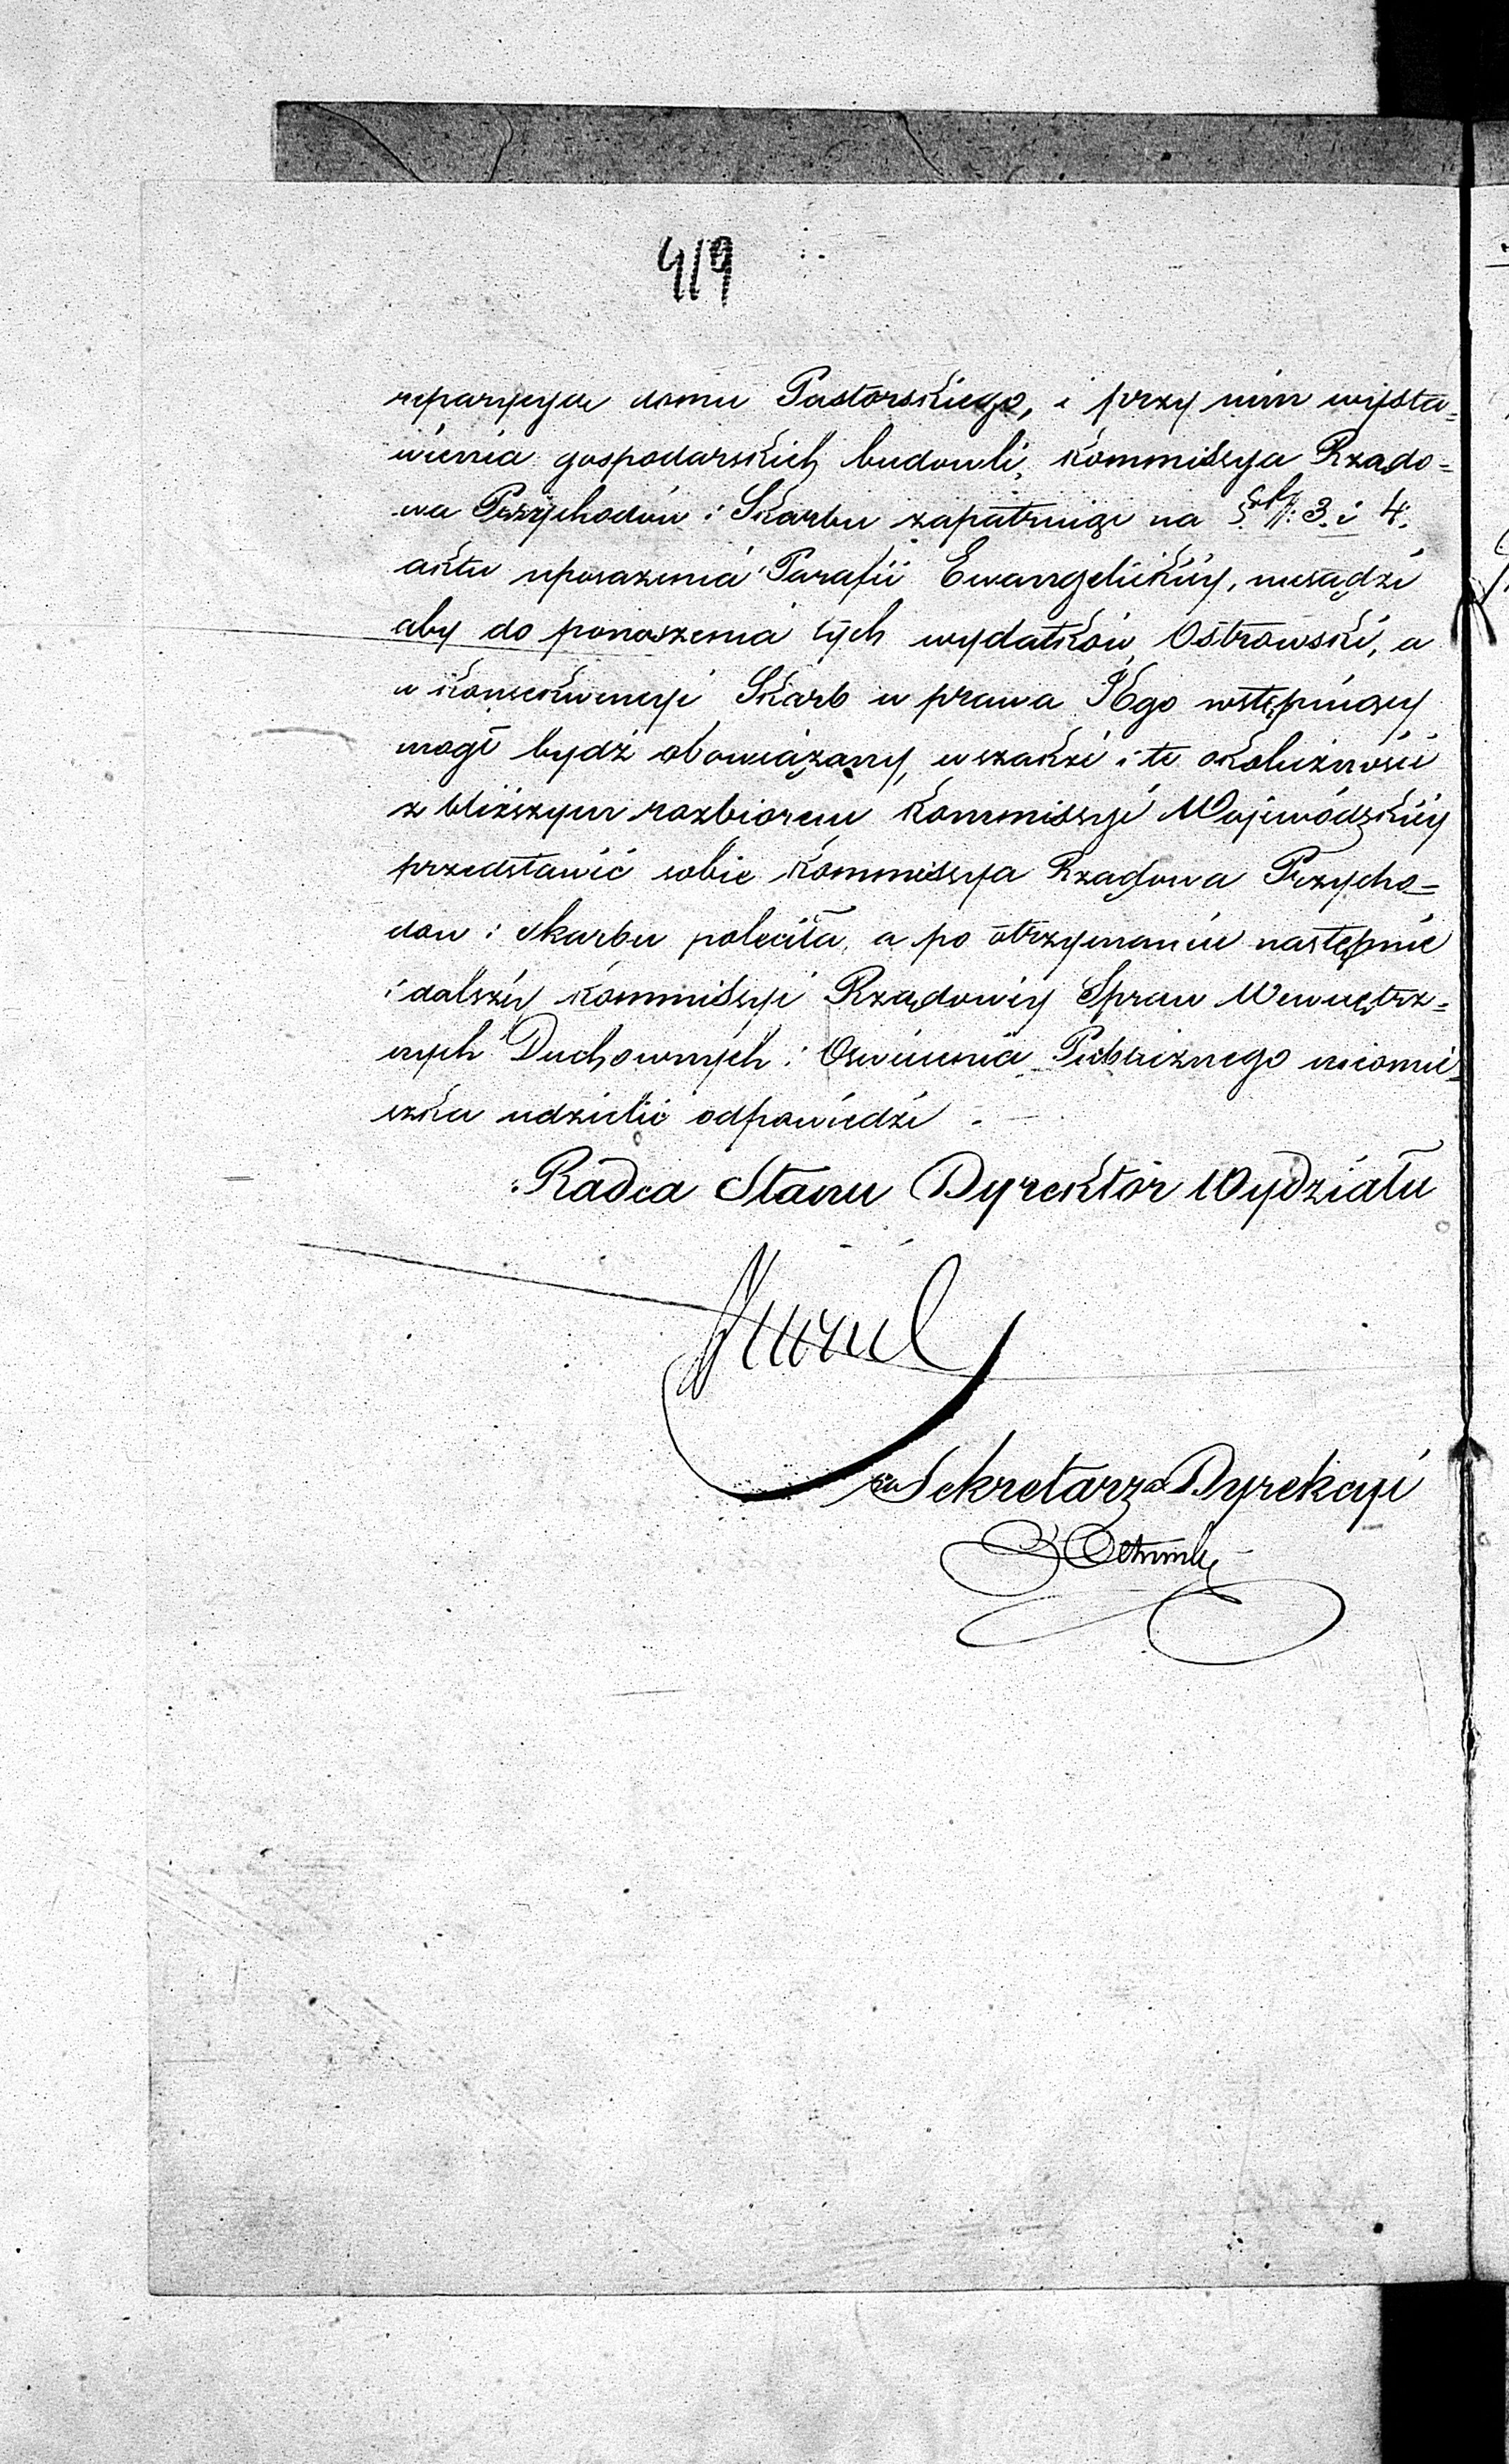 419
reparacyja domu Pastorskiego, i przy nim wysta=
wienia gospodarskich budowli, Kommissya Rządo=
wa Przychodów i Skarbu zapatrując na 3. i 4.
aktu uposażenia Parafii Ewangelickiey, niesądzi
aby do ponoszenia tych wydatków Ostrowski, a
w konsekwencyi Skarb w prawa Jego wstępuiący
mógł bydź obowiązany, wszakże i te okoliczności
z bliższym rozbiorem Kommissyi Wojewódzkiéy
przedstawić sobie Kommissya Rządowa Przycho=
dów i Skarbu poleciła, a po otrzymaniu nastąpnie
i dalszéy Kommissyi Rządowéy Spraw Wewnętrz=
nych Duchownych i Oswiecenia Publicznego nieomie=
szka udzielić odpowiedzi.
Radca Stanu Dyrektor Wydziału
Sekretarza Dyrekcyi